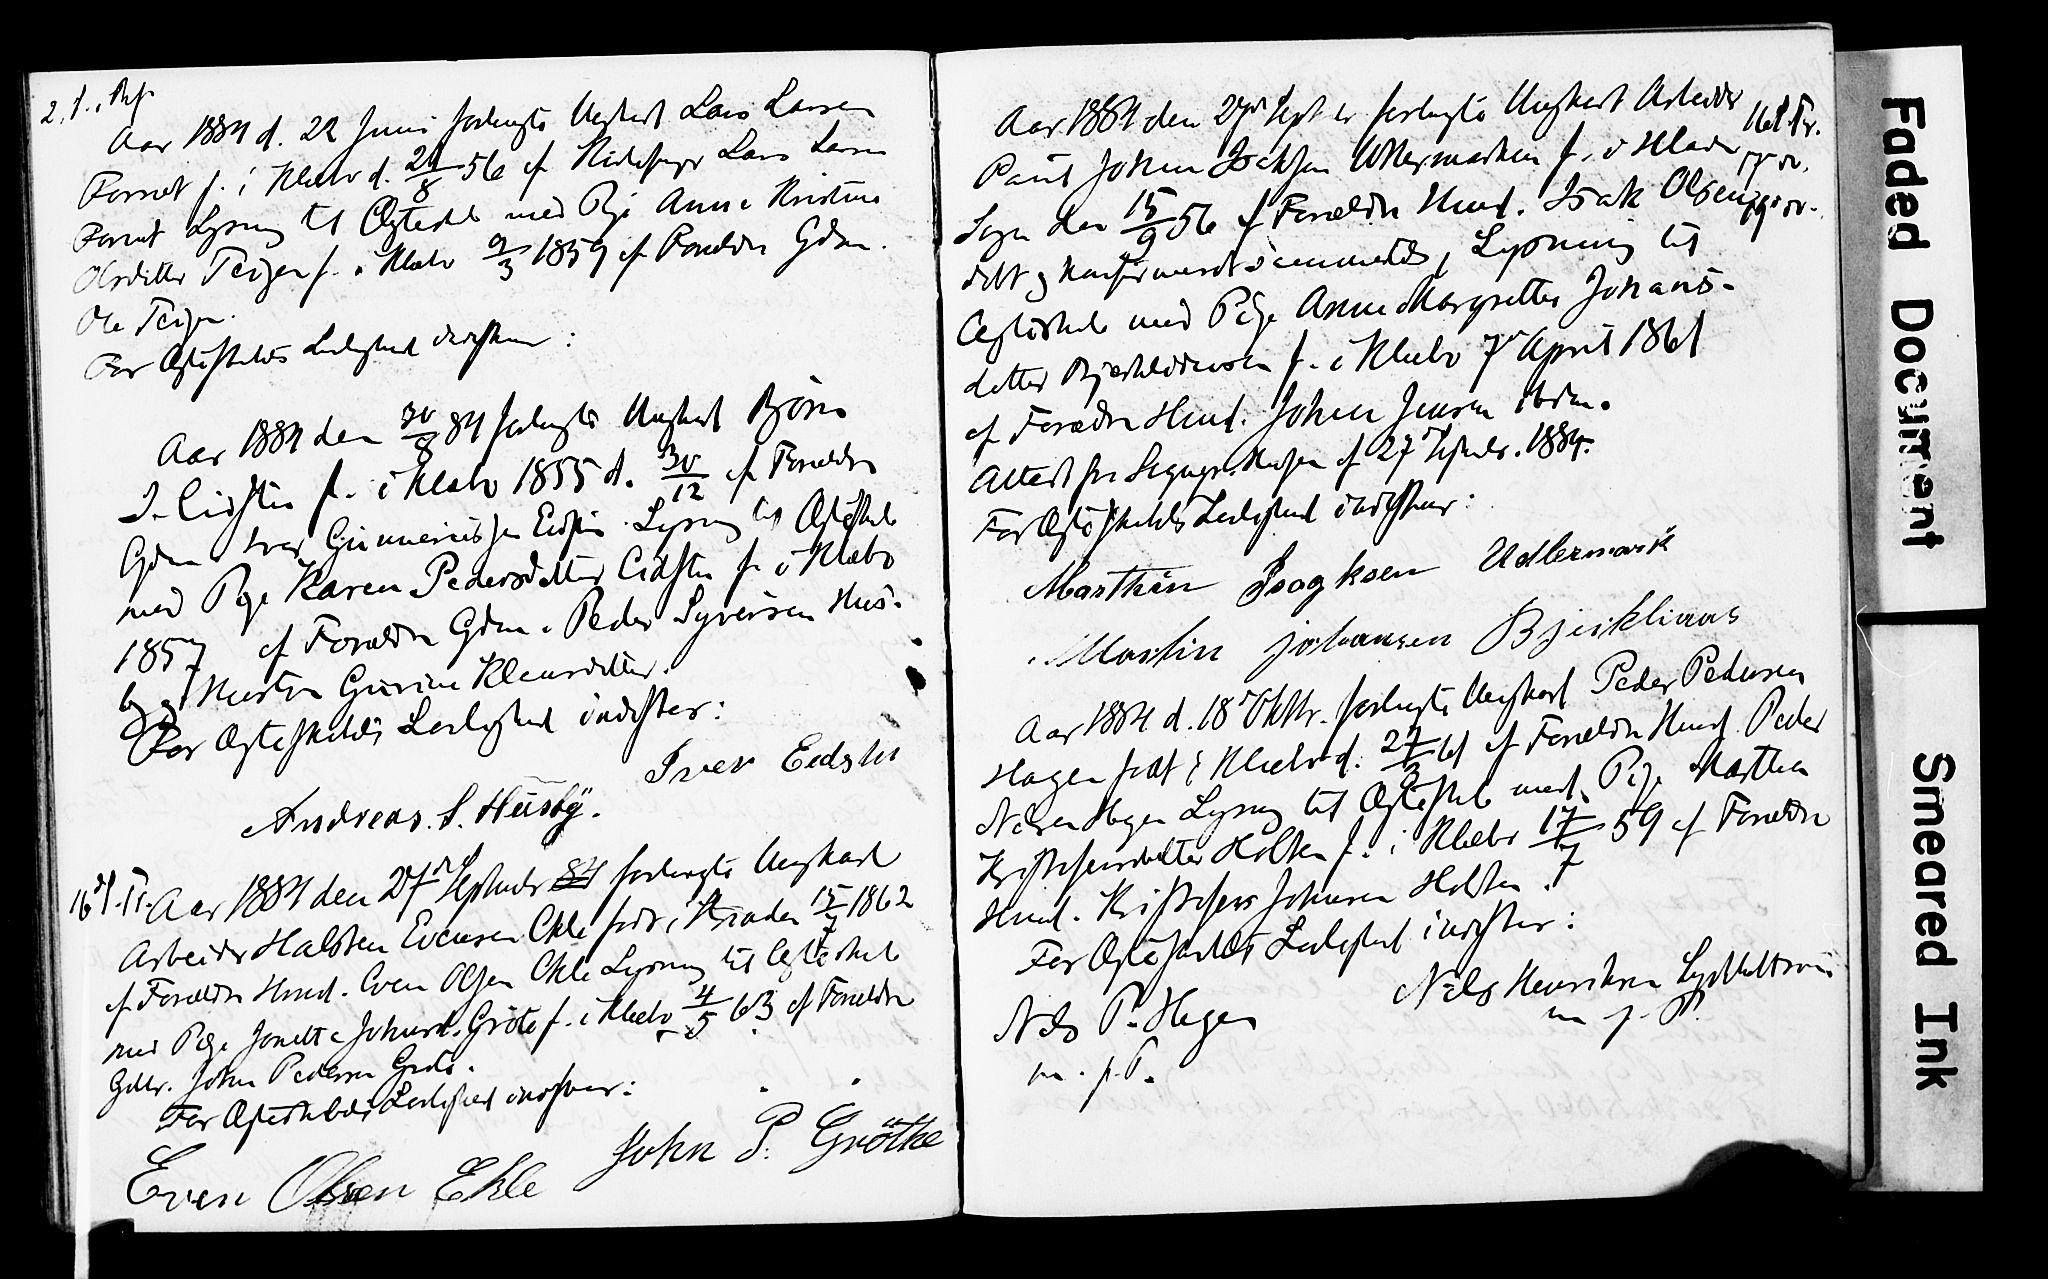 Aar 1884 d. 22 Juni forlangte Ungkarl Lars Larsen
Forset f. i Klæbo d. 21/8 56 af Lars Larsen
Forset Lysning til Ægteskab med Pige Anne Kristine
Olsdatter Teigen f. i Klæbo 9/3 1859 af Forældre Gdm.
Ole Teigen.
For Ægteskabets Lovlighed indestaar:
Aar 1884 den 30/8 84 forlangte Ungkarl Bjørn
I. Eidsten f. i Klæbo 1855 d. 30/12 af Forældre
Gdm Iver Gunneriussen Eidsten Lysning til Ægteskab
med Pige Karen Pedersdatter Eidsten f. i Klæbo
1857 af Forældre Gdm. Peder Syversen Hus-
by og Hustru Gurine Klausdatter.
For Ægteskabets Lovlighed indestaar:
Iver Eidsten
Andreas. S. Husby.
Aar 1884 den 27de Septembr 84 forlangte Ungkarl
Arbeider Halsten Evensen Ekle født i Strinden 15/7 1862
af Forældre Husmd. Even Olsen Ekle Lysning til Ægteskab
med Pige Jonetta Johnsd. Grøte f. i Klæbo 4/5 63 af Forældre
Gdbr. John Pedersen Grøte.
For Ægteskabets Lovlighed indestaar:
Even Olsen Ekle John P. Grøthe
Aar 1884 den 27de Sept er forlangte Ungkarl Arbeider
Paul Johan Isaksen Uttermarken f. i
Sogn den 15/9 56 af Forældre Husmd. Isak Olsen
døbt og konfirmeret sammesteds, Lysning til
Ægteskab med Pige Anne Margrethe Johans-
datter f. i Klæbo 7de April 1861
af Forældre Husmd. Johan Jensen ibdm.
Attest fra af 27 Septembr. 1884.
For Ægteskabets Lovlighed indestaar:
Marthin Isagksen Udlermark
Martin Johansen Bjerkliaas
Aar 1884 d. 18de Oktbr. forlangte Ungkarl Peder Pedersen
Hagen født i Klæbo d. 27/3 61 af Forældre Husmd. Peder
Nilsen Hagen Lysning til Ægteskab med Pige Martha
Kristofersdatter Holten f. i Klæbo 17/7 59 af Forældre
Husmd. Kristofer Johnsen Holten.
For Ægteskabets Lovlighed indestaar:
Nils Henriksen
m. p. P.
Nils P. Hagen
m. p. P.
Faded Document
Smeared Ink